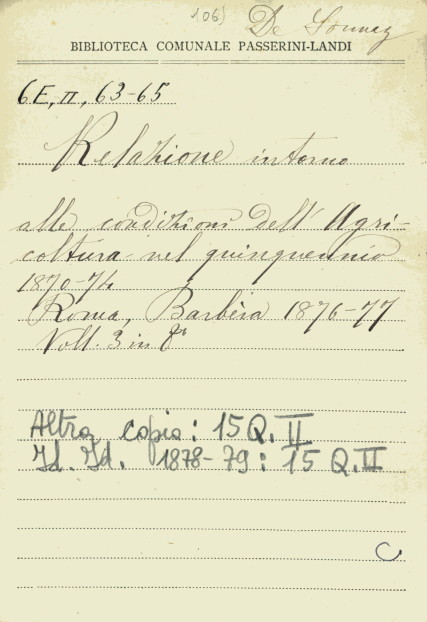 106)
De
BIBLIOTECA COMUNALE PASSERINI-LANDI
6E, II, 63-65
Relazione intorno
alle condizioni dell'Agri-
coltura nel quinquennio
1870-74
Roma, Barbèra 1876-77
Voll. 3 in 8°
Altra copia: 15 Q. II
Id. Id. 1878-79: 15 Q. II
C